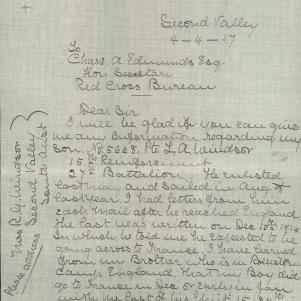 Second Valley
4-4-17
To
Chas. A. Edmunds Esq
Hon Secretary
Red Cross Bureau
Dear Sir
I will be glad if you can give
me any information regarding my
Son. No. 5668. Pte L A Windsor
15th Reinforcement
27th Battalion. He enlisted
last May and sailed in Aug of
last year. I had letters from him
each Mail after he reached England
the last was written on Dec 10th 1916
In which he told me he expected to be
going across to France, I have learned
from my Brother who is in
Camp England, that my Boy did
go to France in Dec or early in Jan
Please address
Miss R. J. Windsor
Second Valley
South Aust